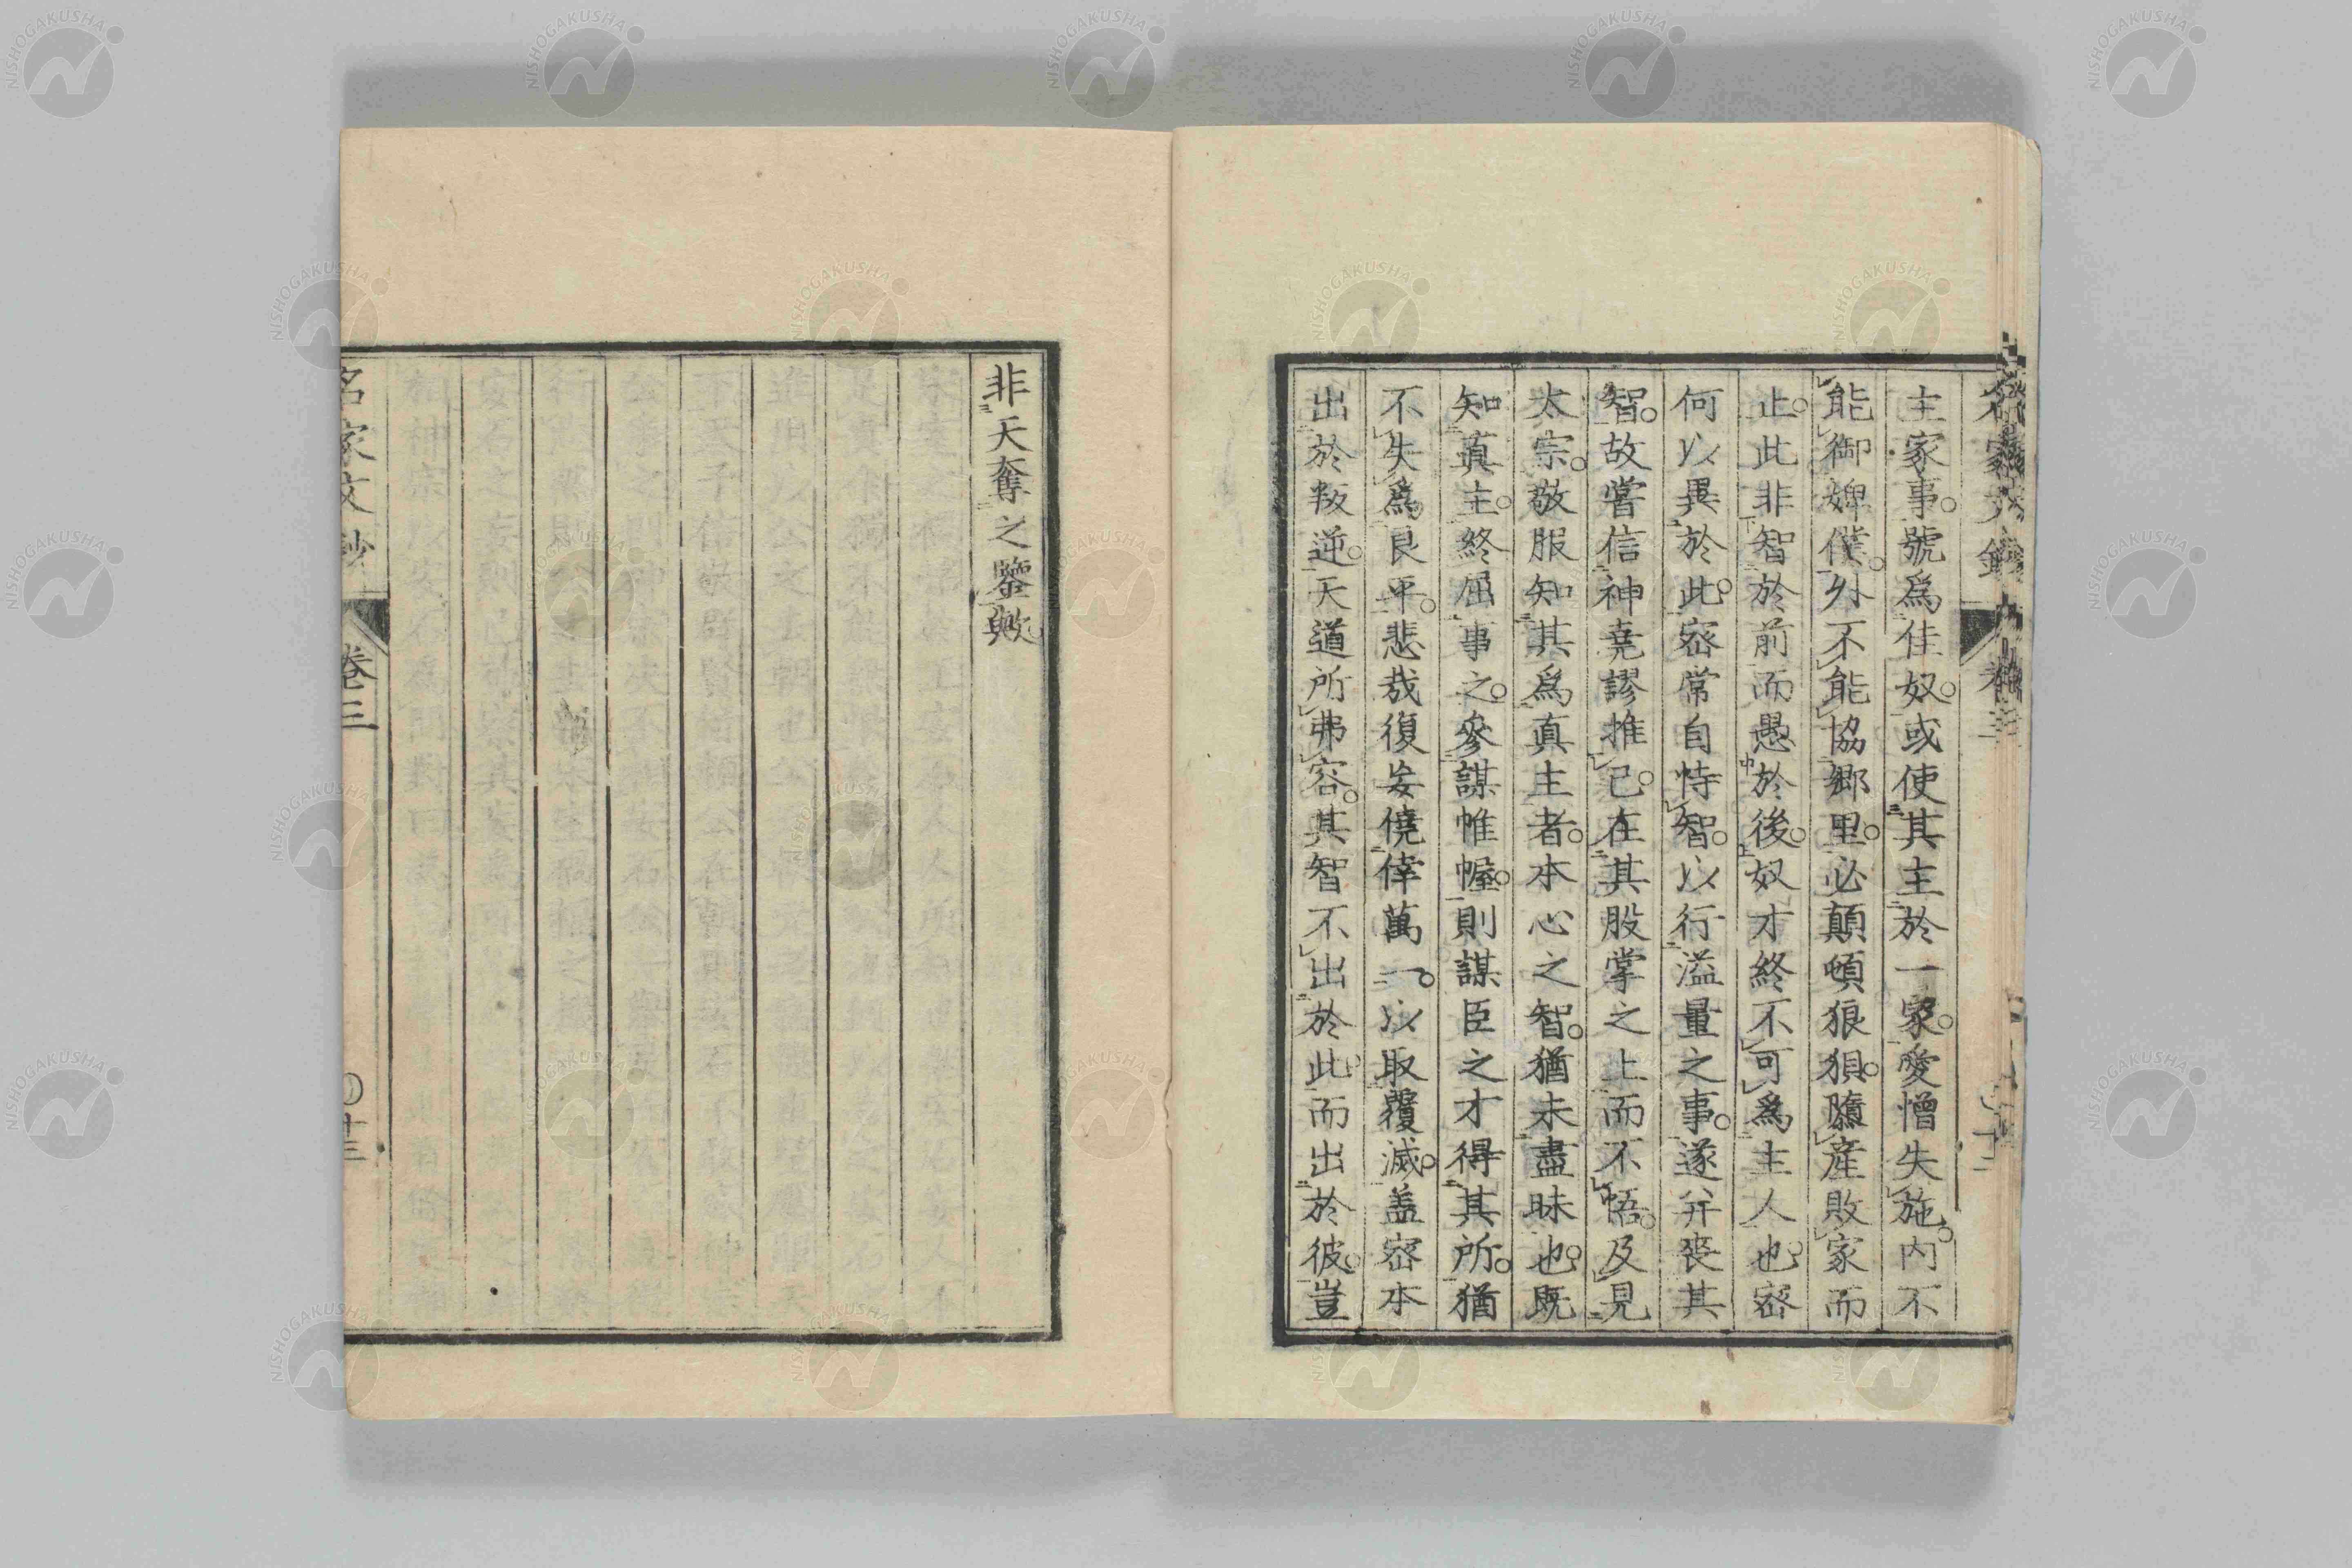 主家事。號爲佳奴。或使其主於一家。愛憎失施。内不
能御婢僕。外不能協郷里。必顛頓狼狽。隳産敗家而
止。此非智於前而愚於後。奴才終不可爲主人也。密
何以異於此。密常自恃智。以行溢量之事。遂并喪其
智。故嘗信神堯謬推己。在其股掌之上而不悟。及見
太宗。敬服知其爲真主者。本心之智。猶未盡昧也。既
知真主。終屈事之。參謀帷幄。則謀臣之才得其所。猶
不失爲良平。悲哉復妄僥倖萬一。以取覆滅。盖密本
出於叛逆。天道所弗容。其智不出於此。而出於彼。豈
非天奪之鑒歟。
名家文抄
卷三
十三
NISHOGAKUSHA